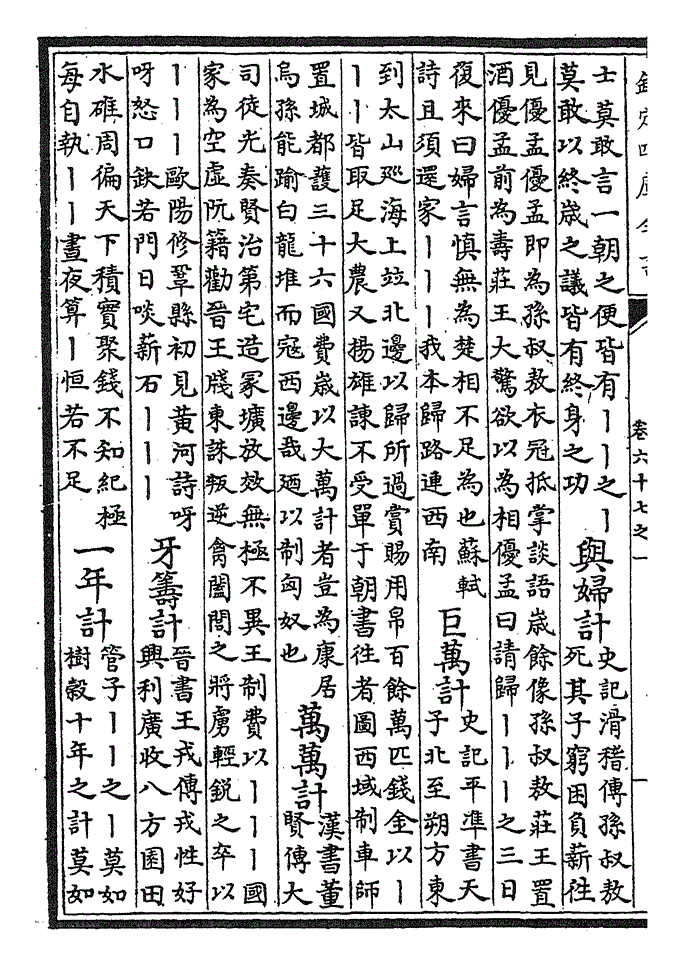 欽定四庫全書
卷六十七之一
一
士莫敢言一朝之便皆有丨丨之丨
莫敢以終歳之議皆有終身之功
與婦計
史記滑稽傳孫叔敖
死其子窮困負薪徃
見優孟優孟即為孫叔敖衣冠抵掌談語歳餘像孫叔敖莊王置
酒優孟前為壽莊王大驚欲以為相優孟曰請歸丨丨丨之三日
復來曰婦言慎無為楚相不足為也蘇軾
詩且須還家丨丨丨我本歸路連西南
巨萬計
史記平準書天
子北至朔方東
到太山廵海上竝北邊以歸所過賞賜用帛百餘萬匹錢金以丨
丨丨皆取足大農又揚雄諫不受單于朝書徃者圖西域制車師
置城都護三十六國費歳以大萬計者豈為康居
烏孫能踰白龍堆而寇西邊哉廼以制匈奴也
萬萬計
漢書董
賢傳大
司徒光奏賢治第宅造冢壙放效無極不異王制費以丨丨丨國
家為空虛阮籍勸晉王牋東誅叛逆禽闔閭之將虜輕鋭之卒以
丨丨丨歐陽修鞏縣初見黃河詩呀
呀怒口缺若門日啖薪石丨丨丨
牙籌計
晉書王戎傳戎性好
興利廣收八方園田
水碓周徧天下積實聚錢不知紀極
每自執丨丨晝夜算丨恒若不足
一年計
管子丨丨之丨莫如
樹穀十年之計莫如